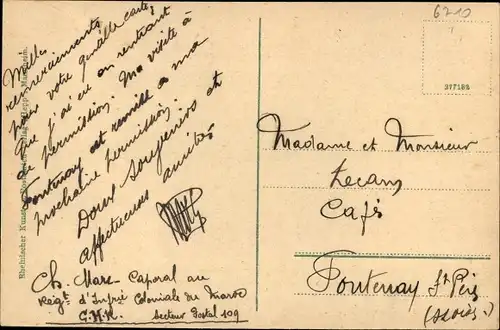 6210
277182
Mille
remerciements
pour votre gentille carte
que j'ai eu en rentrant
de permission. Ma visite à
Fontenay est remise à ma
prochaine permission.
Doux souvenirs et
affectueuses amitiés
Ch. Marc - Caporal au
Régt d'Infrie Coloniale du Maroc
C.H.R. Secteur Postal 109
Madame et Monsieur
Lecanq
Café
Fontenay St Père
Rheinischer Kunst